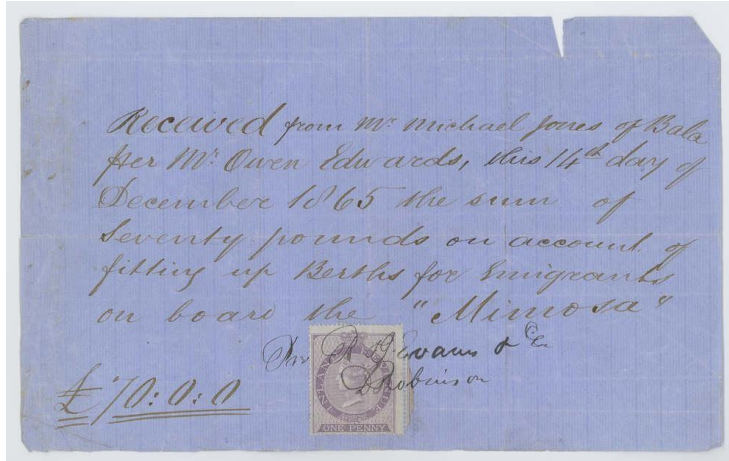 Received from Mr Michael Jones of Bala
per Mr Owen Edwards, this 14th day of
December 1865 the sum of
Seventy pounds on account of
fitting up Berths for Emigrants
on board the "Mimosa"
R J Evans & Co
D Robinson
£70:0:0
ENGLAND
ONE PENNY